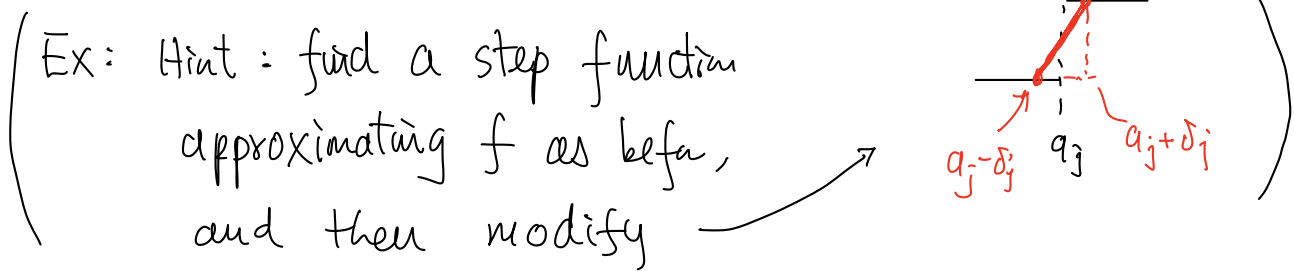 Ex: Hint: find a step function
approximating f as before,
and then modify
a_j-δ_j
a_j
a_j+δ_j